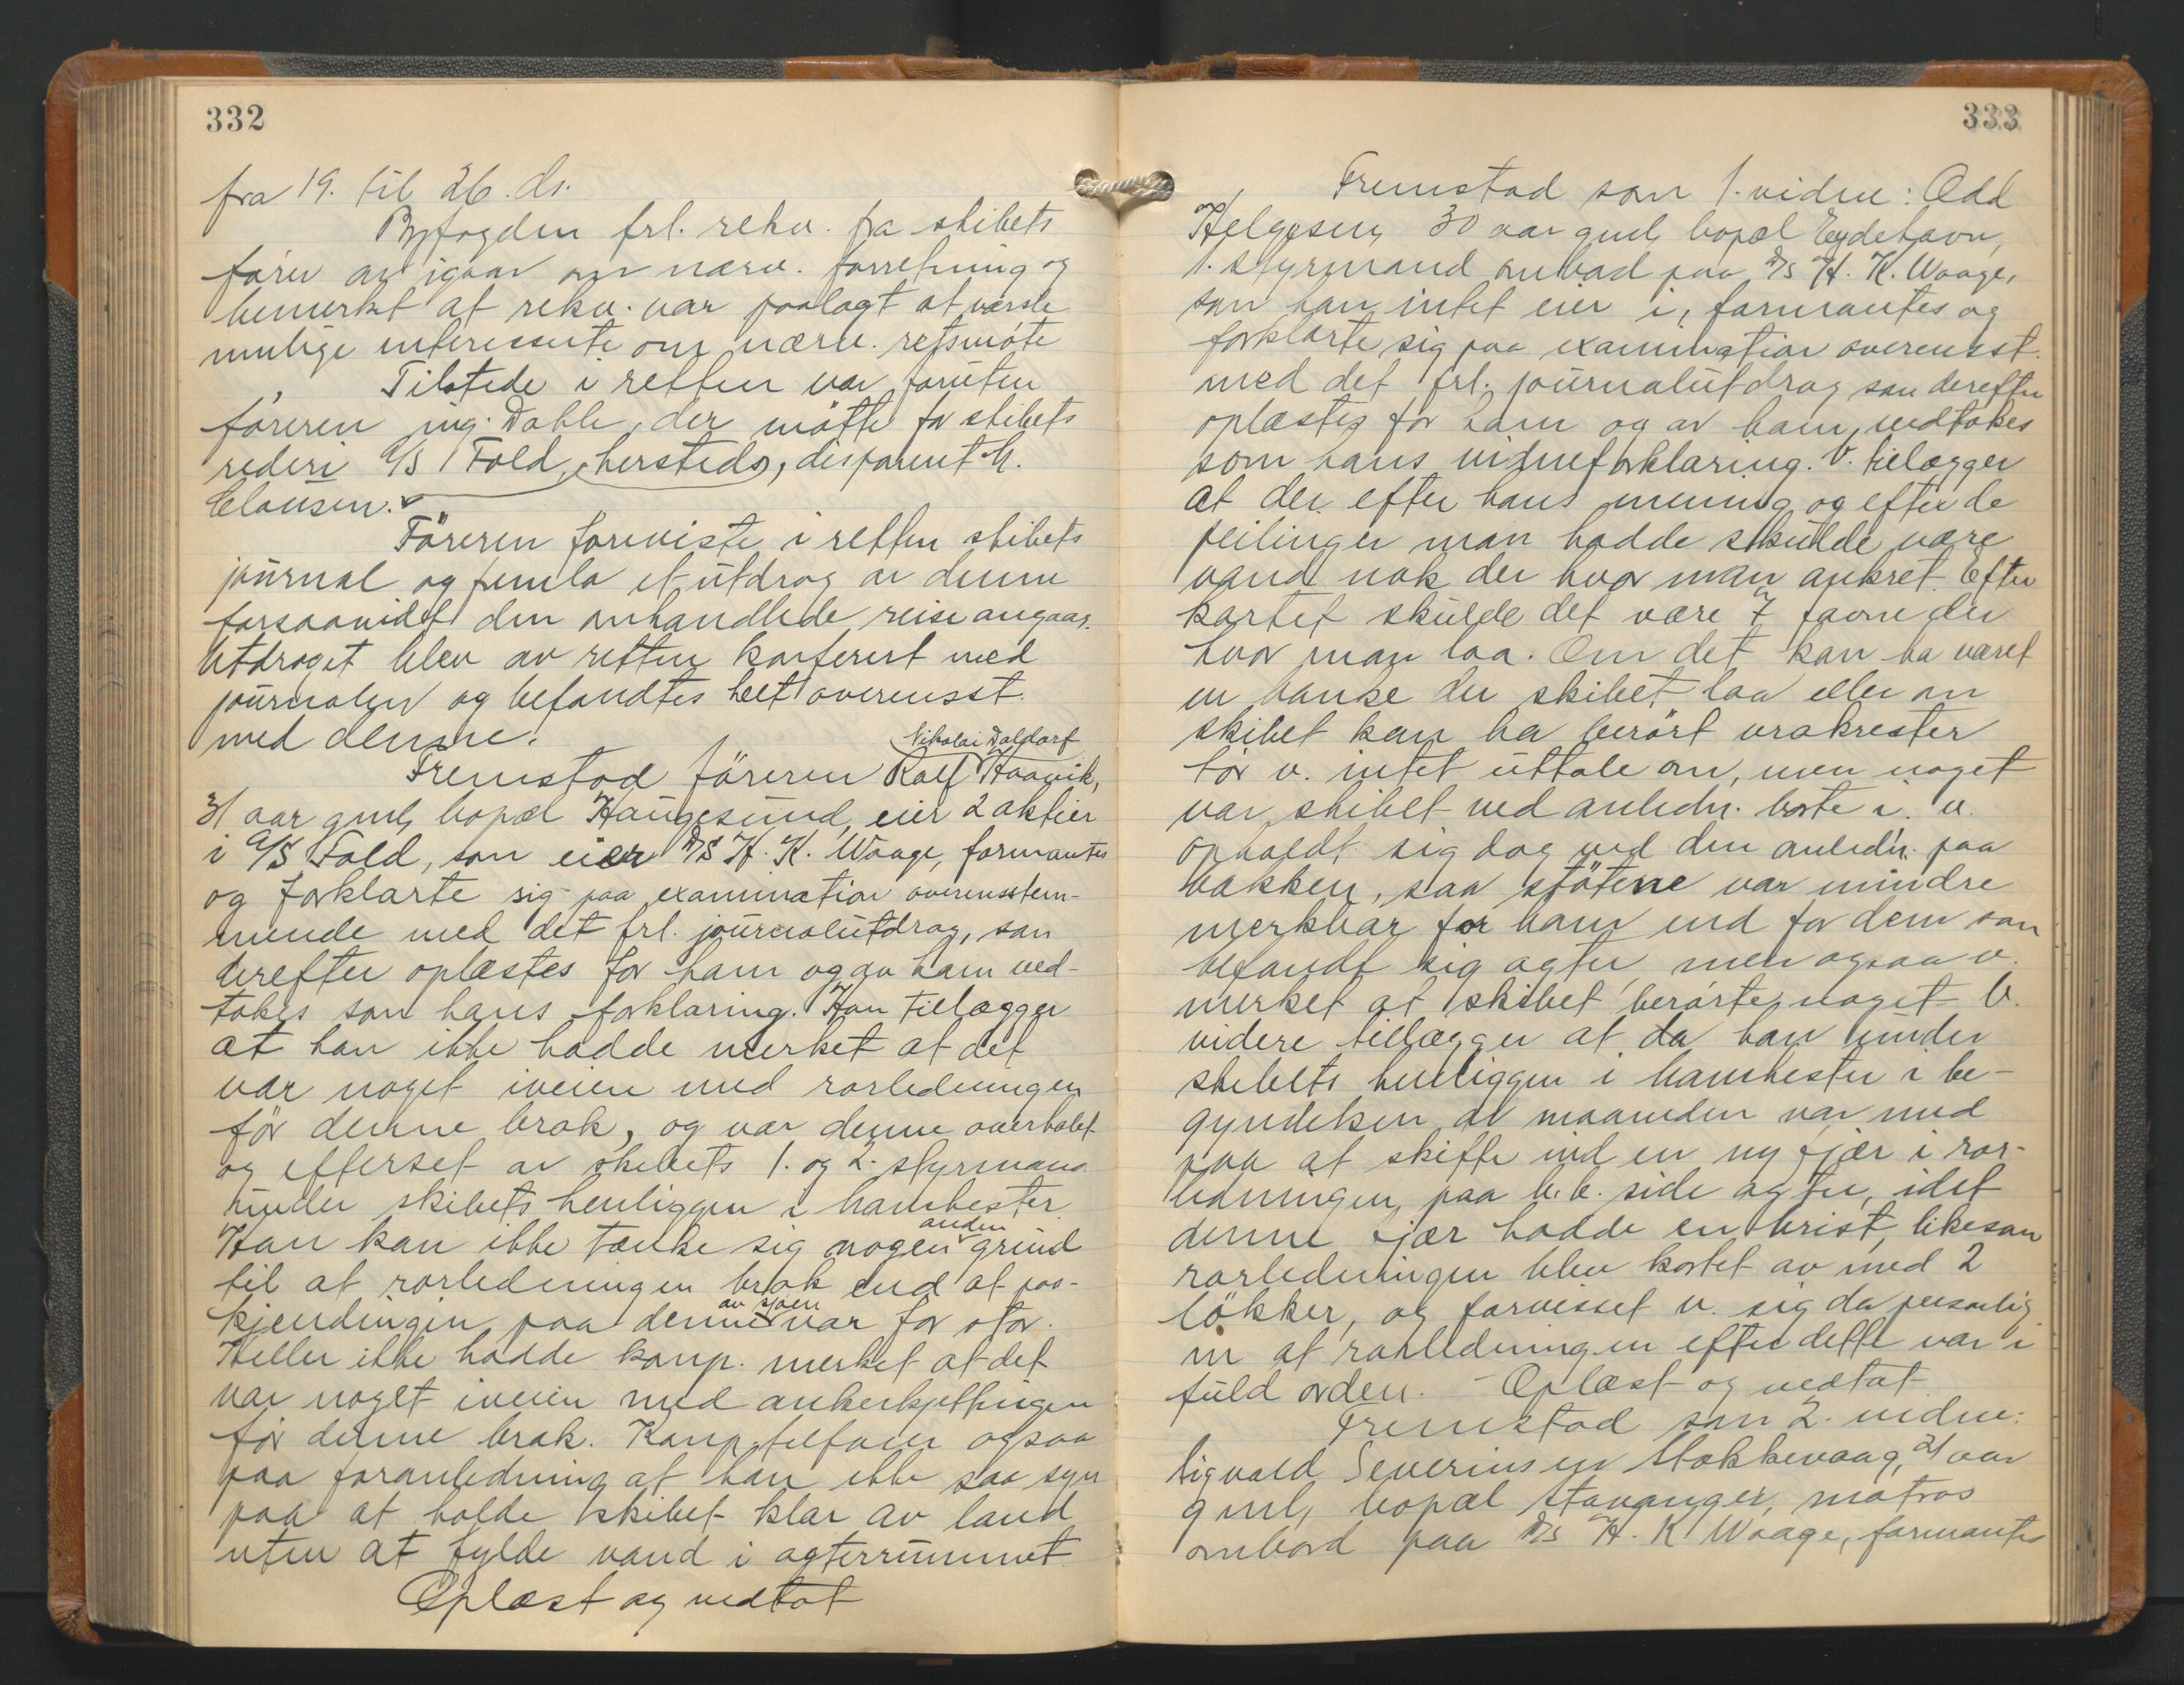 332
fra 19. til 26. ds.
Byfogden frl. rekv. fra skibets
fører av igaar om nærv. forretning og
bemerket at rekv. var paalagt at varsle
mulige interessente om nærv. retsmöte
Tilstede i retten var foruten
föreren ing. Dahle, der mötte for skibets
rederi A/S Fold, hersteds, disponent h.
Clausen.
Föreren foreviste i retten skibets
journal og fremla et utdrag av denne
forsaavidt den omhandlede reise angaar.
Utdraget blev av retten konferert med
journalen og befandtes helt overensst.
med denne.
Nikolai Daldorf
Fremstod föreren Rolf Haavik,
31 aar gml, bopæl Haugesund, eier 2 aktier
i A/S Fold, som eier D/S H. K. Waage, formantes
og forklarte sig paa examination overensstem-
mende med det frl. journalutdrag, som
derefter oplæstes for ham og av ham ved-
tokes som hans forklaring. Han tillægger
at han ikke hadde merket at det
var noget iveien med rorledningen
för denne brak, og var denne overhalet
og efterset av skibets 1. og 2. styrmand
under skibets henliggen i Manchester.
anden
Han kan ikke tænke sig nogen grund
til at rorledningen brak end at paa-
av sjøen
kjendingen paa denne var for stor.
Heller ikke hadde komp. merket at det
var noget iveien med ankerkjettingen
för denne brak. Komp. tilføier ogsaa
paa foranledning at han ikke saa syn
paa at holde skibet klar av land
uten at fylde vand i agterrummet.
Oplæst og vedtat
333
Fremstod som 1. vidne: Odd
Helgesen, 30 aar gml, bopæl Eydehavn,
1. styrmand ombord paa D/S H. K. Waage,
som han intet eier i, formantes og
forklarte sig paa examination overensst.
med det frl. journalutdrag som derefter
oplæstes for ham og av ham, vedtokes
som hans vidneforklaring. V. tillægger
at der efter hans mening og efter de
peilinger man hadde skulde være
vand nok der hvor man ankret. Efter
kartet skulde det være 7 favne der
hvor man laa. Om det kan ha været
en banke der skibet laa eller om
skibet kan ha berört vrakrester
tör v. intet uttale om, men noget
var skibet ved anledn. borte i. V.
opholdt sig dog ved den anledn. paa
bakken, saa stötene var mindre
merkbar for ham end for dem som
befandt sig agter, men ogsaa v.
merket at skibet berörte noget. V.
videre tillægger at da han under
skibets henliggen i Manchester i be-
gyndelsen av maaneden var med
paa at skifte ind en ny fjær i ror-
ledningen paa b.b. side agter, idet
denne fjær hadde en brist, likesom
rorledningen blev kortet av med 2
løkker, og forvisset v. sig da personlig
om at rorledningen efter dette var i
fuld orden. - Oplæst og vedtat
Fremstod som 2. vidne:
Sigvald Severinsen Stokkevaag, 21 aar
gml, bopæl Stavanger, matros
ombord paa D/S H. K Waage, formantes